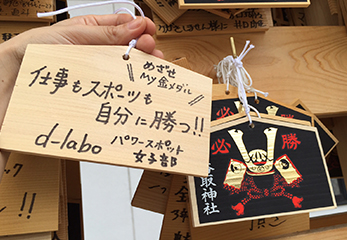 めざせ
My金メダル
仕事もスポーツも
自分に勝つ!!
d-labo
パワースポット
女子部
必勝
取神社